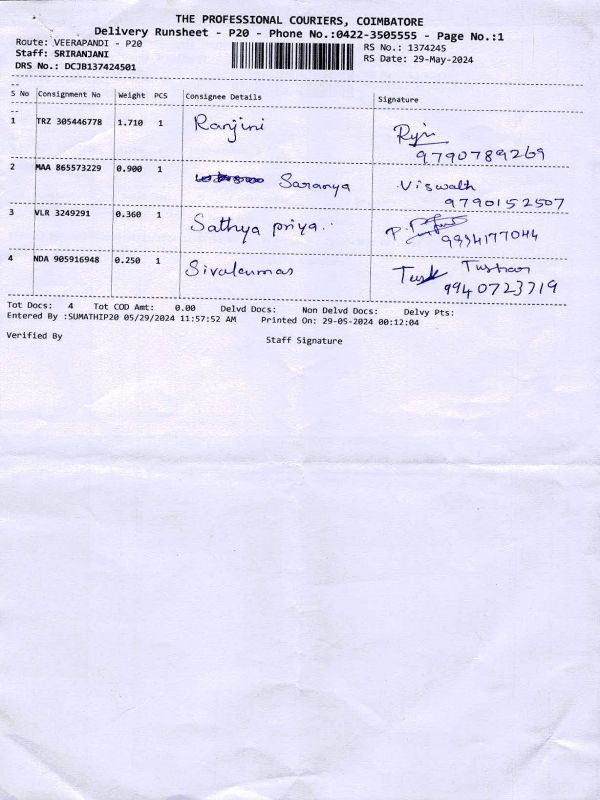 THE PROFESSIONAL COURIERS, COIMBATORE
Delivery Runsheet - P20 - Phone No.:0422-3505555 - Page No.:1
Route: VEERAPANDI - P20
RS No.: 1374245
Staff: SRIRANJANI
RS Date: 29-May-2024
DRS No.: DCJB137424501
S No Consignment No Weight PCS Consignee Details Signature
1 TRZ 305446778 1.710 1 Ranjini
9790789269
2 MAA 865573229 0.900 1 Saranya Viswalth
9790152507
3 VLR 3249291 0.360 1 Sathya priya.
9994177044
4 NDA 905916948 0.250 1 Sivakumar Tushar
9940723719
Tot Docs: 4 Tot COD Amt: 0.00 Delvd Docs: Non Delvd Docs: Delvy Pts:
Entered By :SUMATHIP20 05/29/2024 11:57:52 AM Printed On: 29-05-2024 00:12:04
Verified By Staff Signature